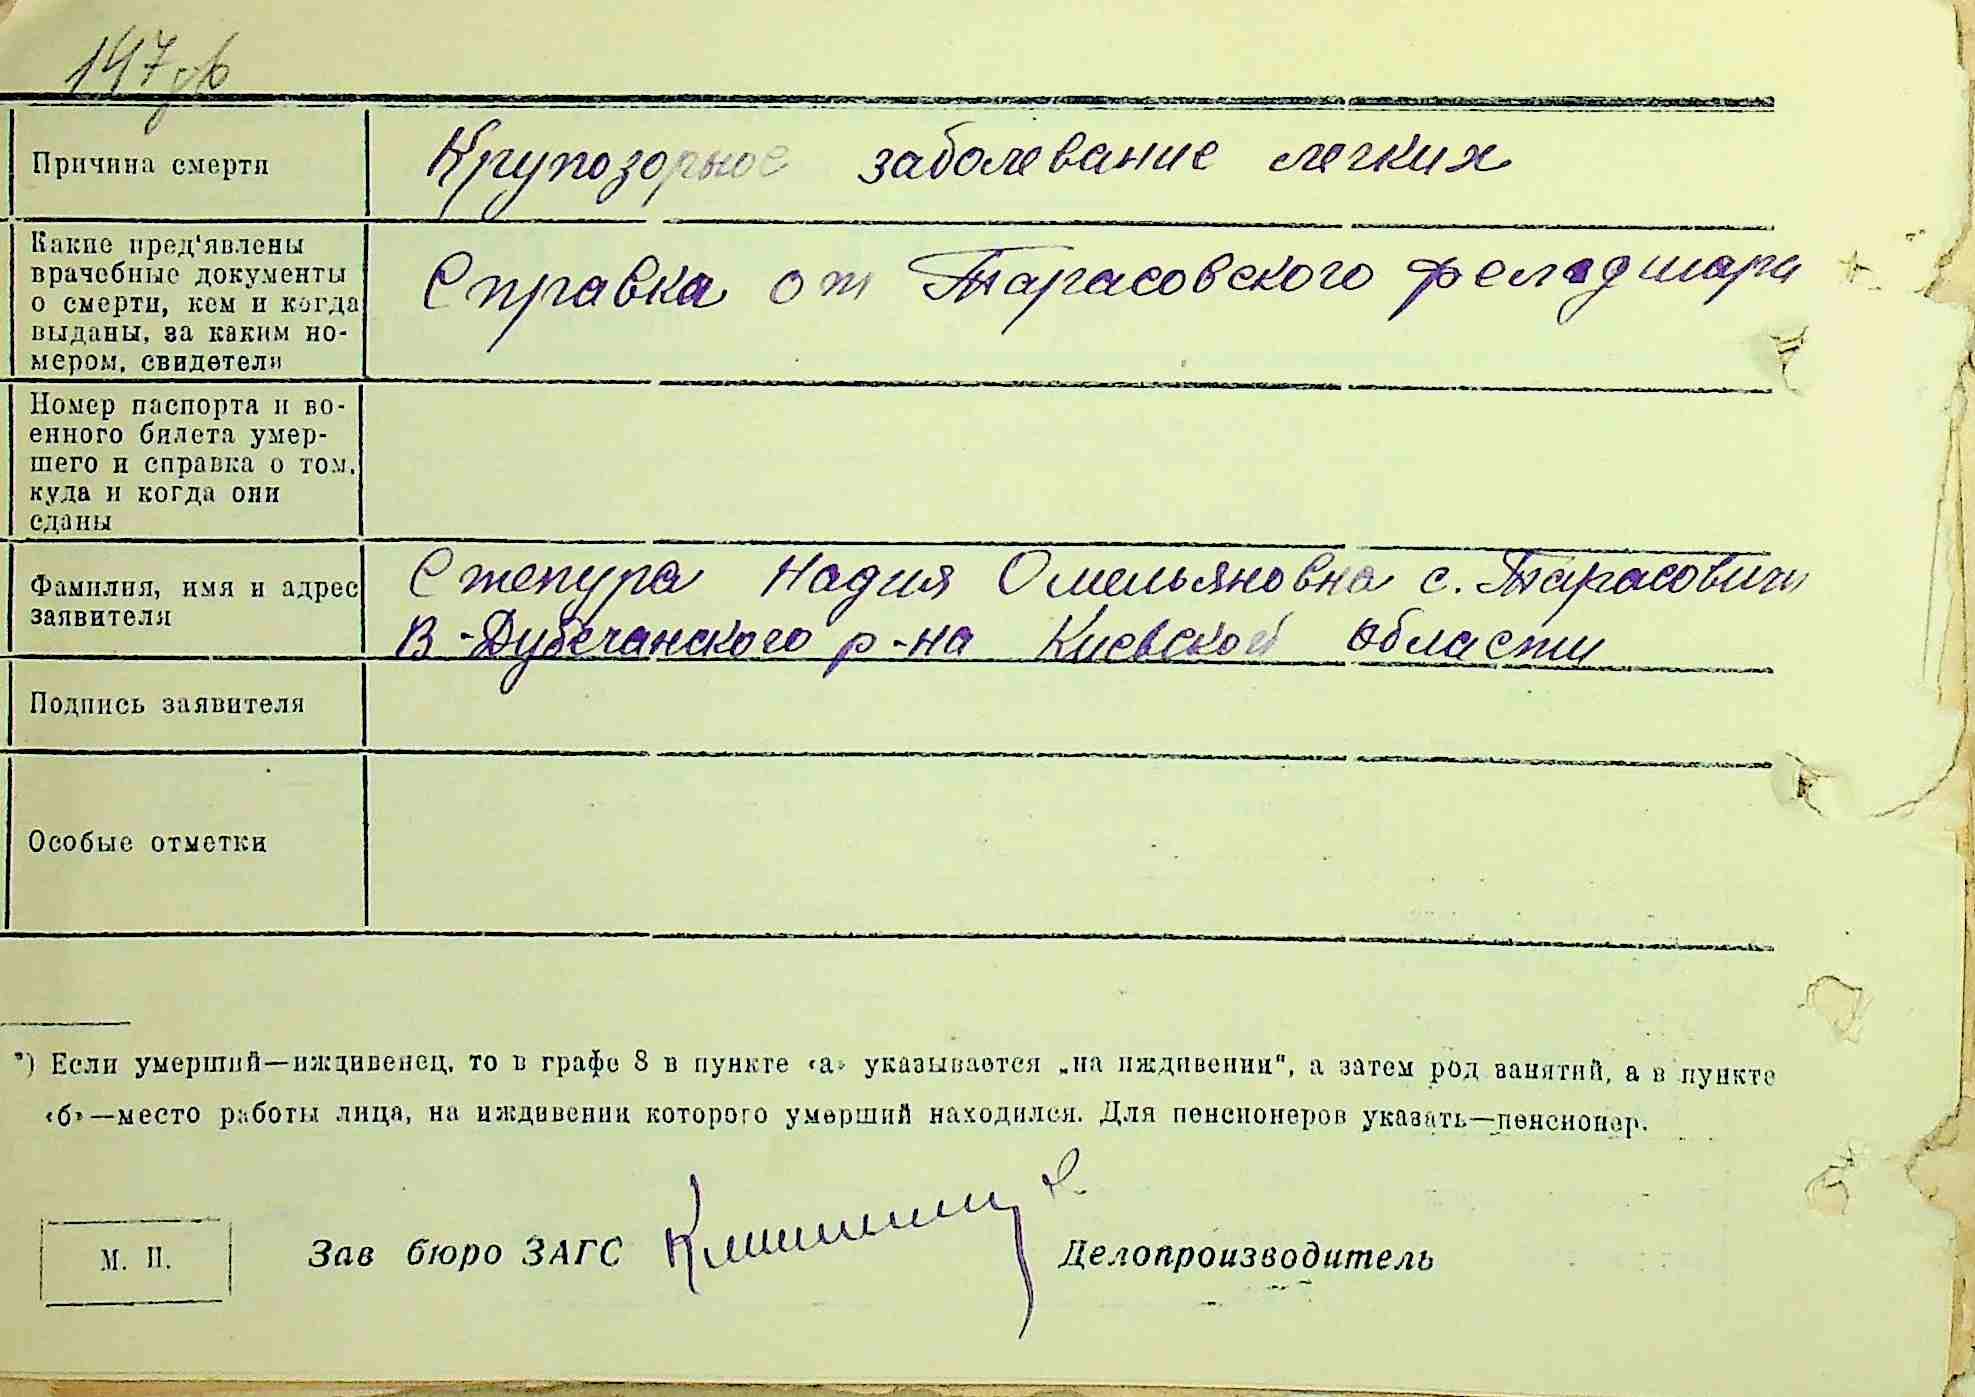 147
Причина смерти
Крупозорное заболевание легких
Какие пред'явлены
врачебные документы
о смерти, кем и когда
выданы, за каким но-
мером, свидетели
Справка от Тарасовского фелэдшара
Номер паспорта и во-
енного билета умер-
шего и справка о том,
куда и когда они
сданы
Фамилия, имя и адрес
заявителя
Степура Надия Омельяновна с. Тарасовичи
В-Дубечанского р-на Киевской области
Подпись заявителя
Особые отметки
*) Если умерший—иждивенец, то в графе 8 в пункте «а» указывается „на иждивении“, а затем род занятий, а в пункте
«б»—место работы лица, на иждивении которого умерший находился. Для пенсионеров указать—пенсионер.
М. П.
Зав бюро ЗАГС
Делопроизводитель